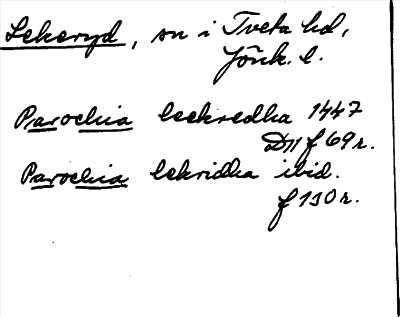 Lekeryd, sn i Tveta hd,
Jönk. l.
Parochia leekredha 1447
D11 f 69 r.
Parochia lekridha ibid.
f 110 r.